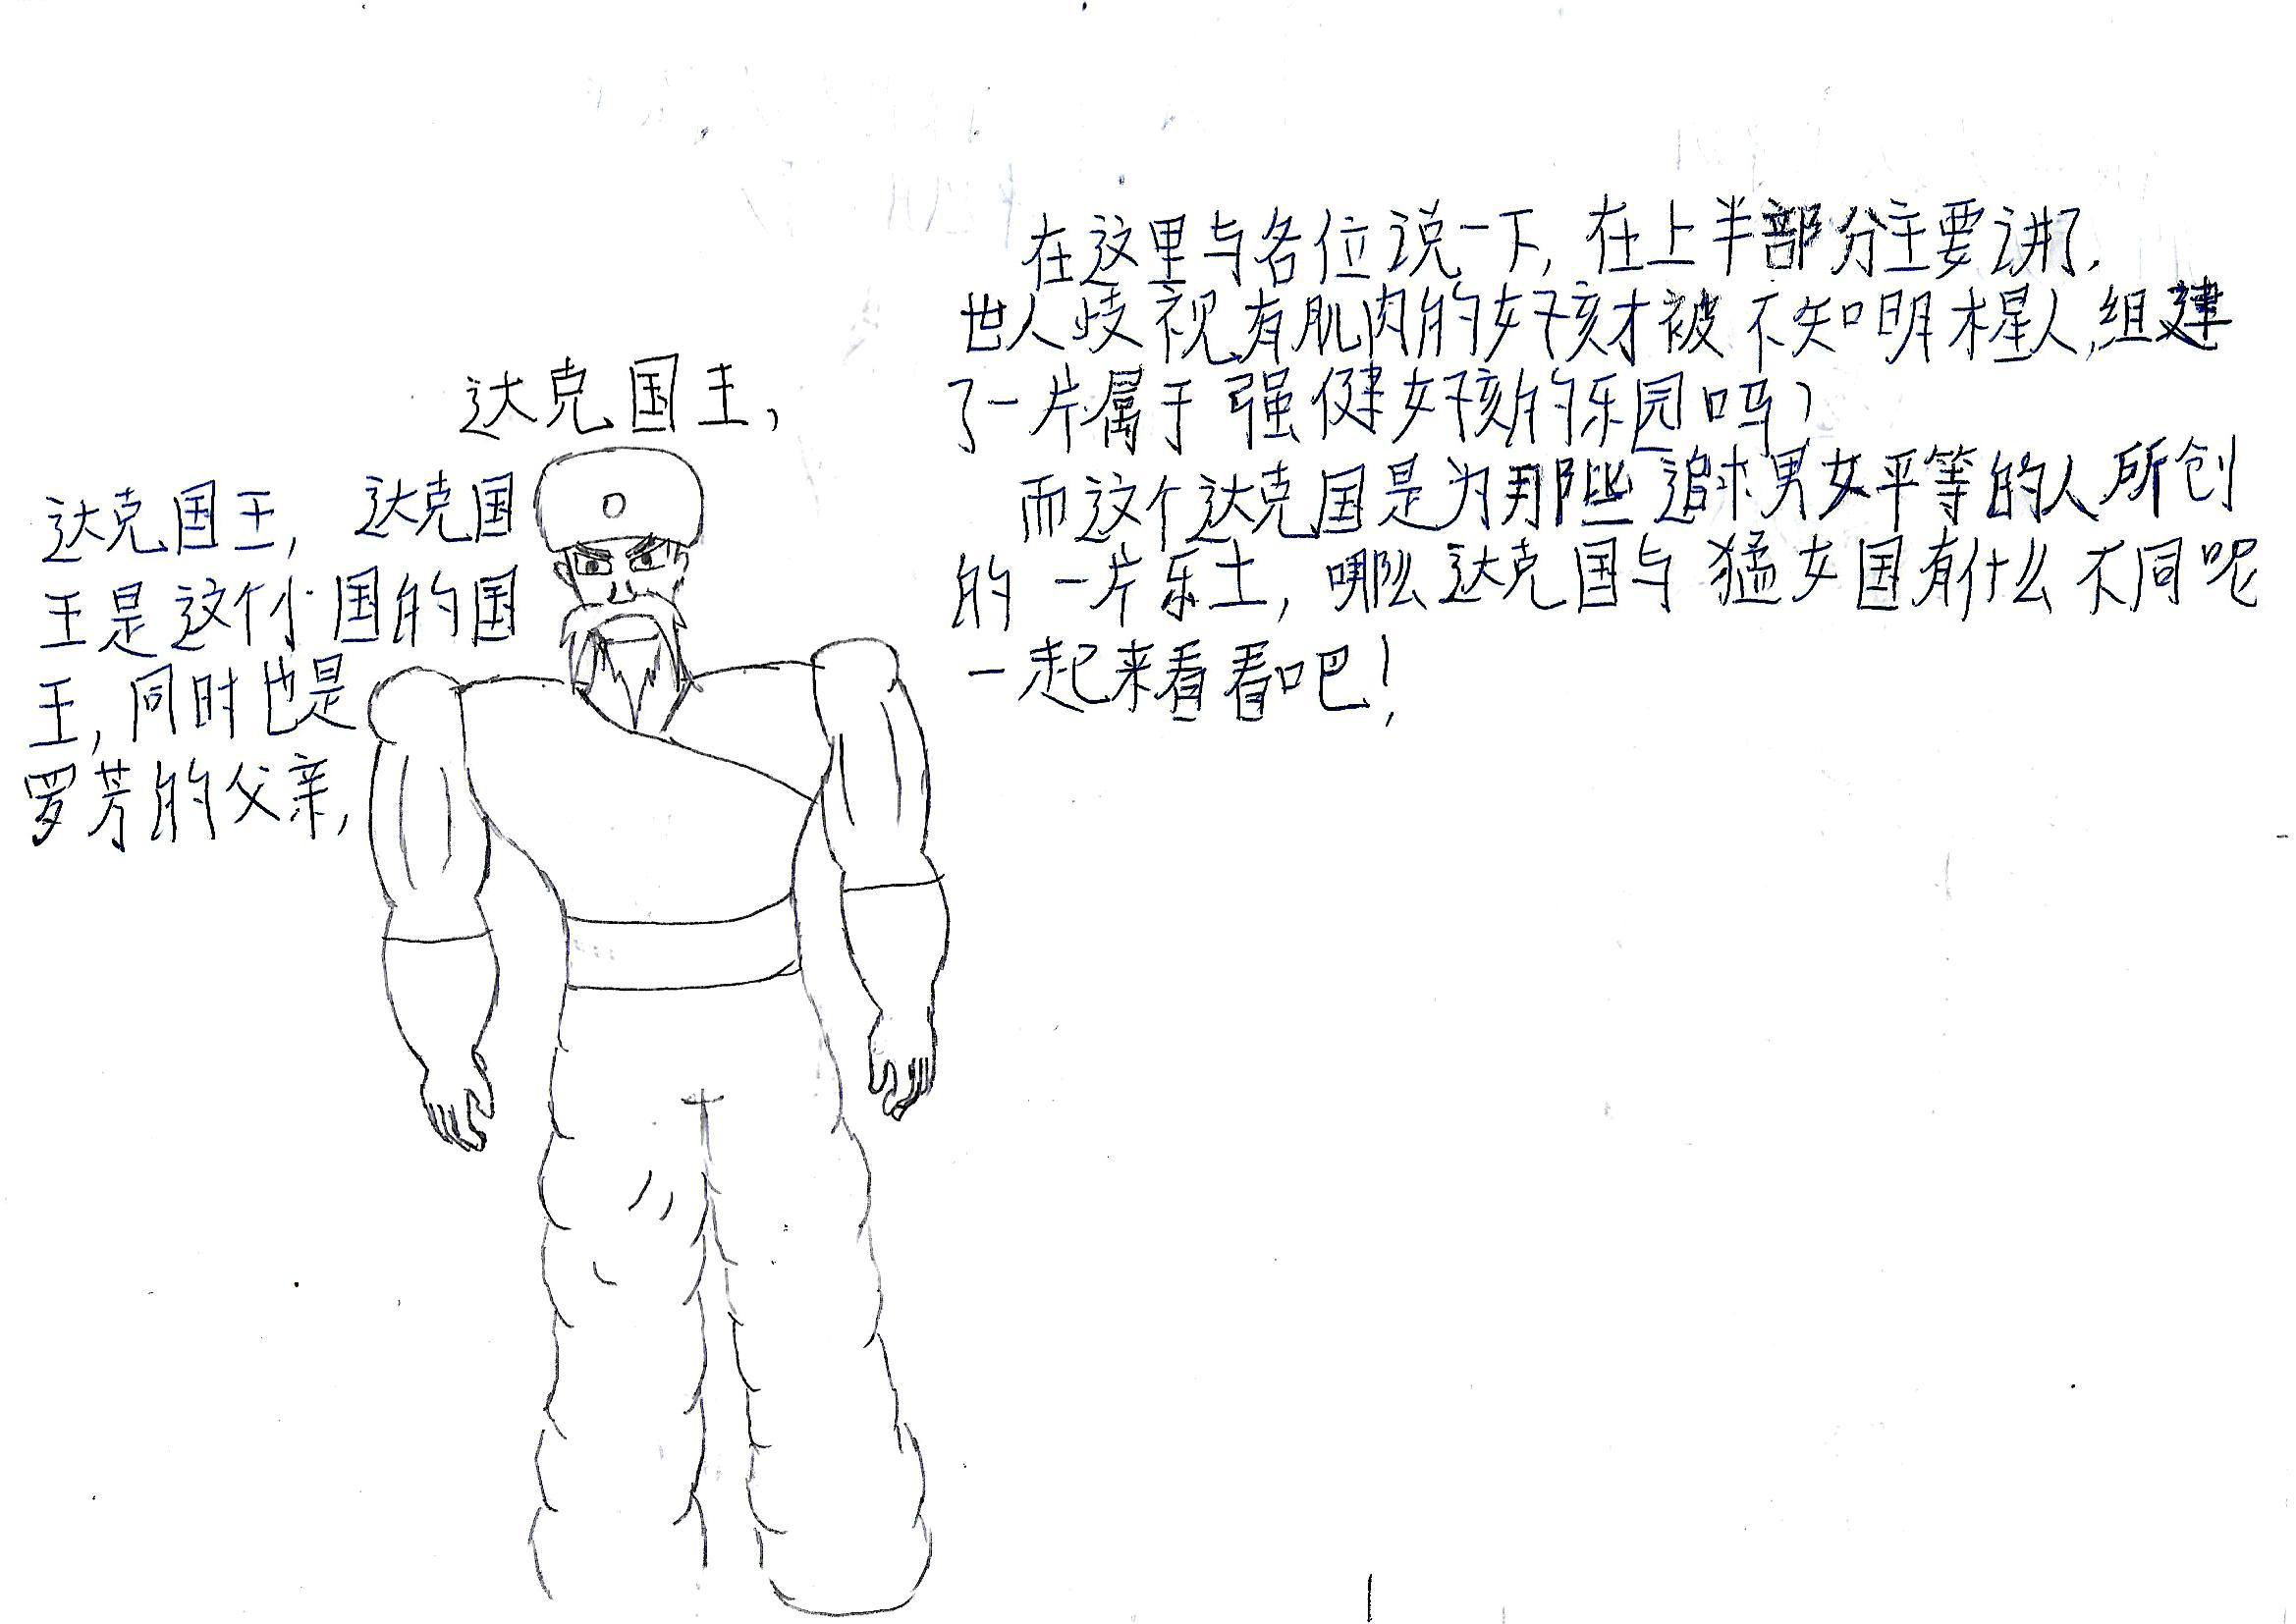 达克国王,
达克国王, 达克国
王是这个小国的国
王, 同时也是
罗芳的父亲,
在这里与各位说一下, 在上半部分主要讲了,
世人歧视有肌肉的女孩才被不知明木星人,组建
了一片属于强健女孩的乐园吗?
而这个达克国是为那些追求男女平等的人所创
的一片乐土, 哪么达克国与猛女国有什么不同呢
一起来看看吧!